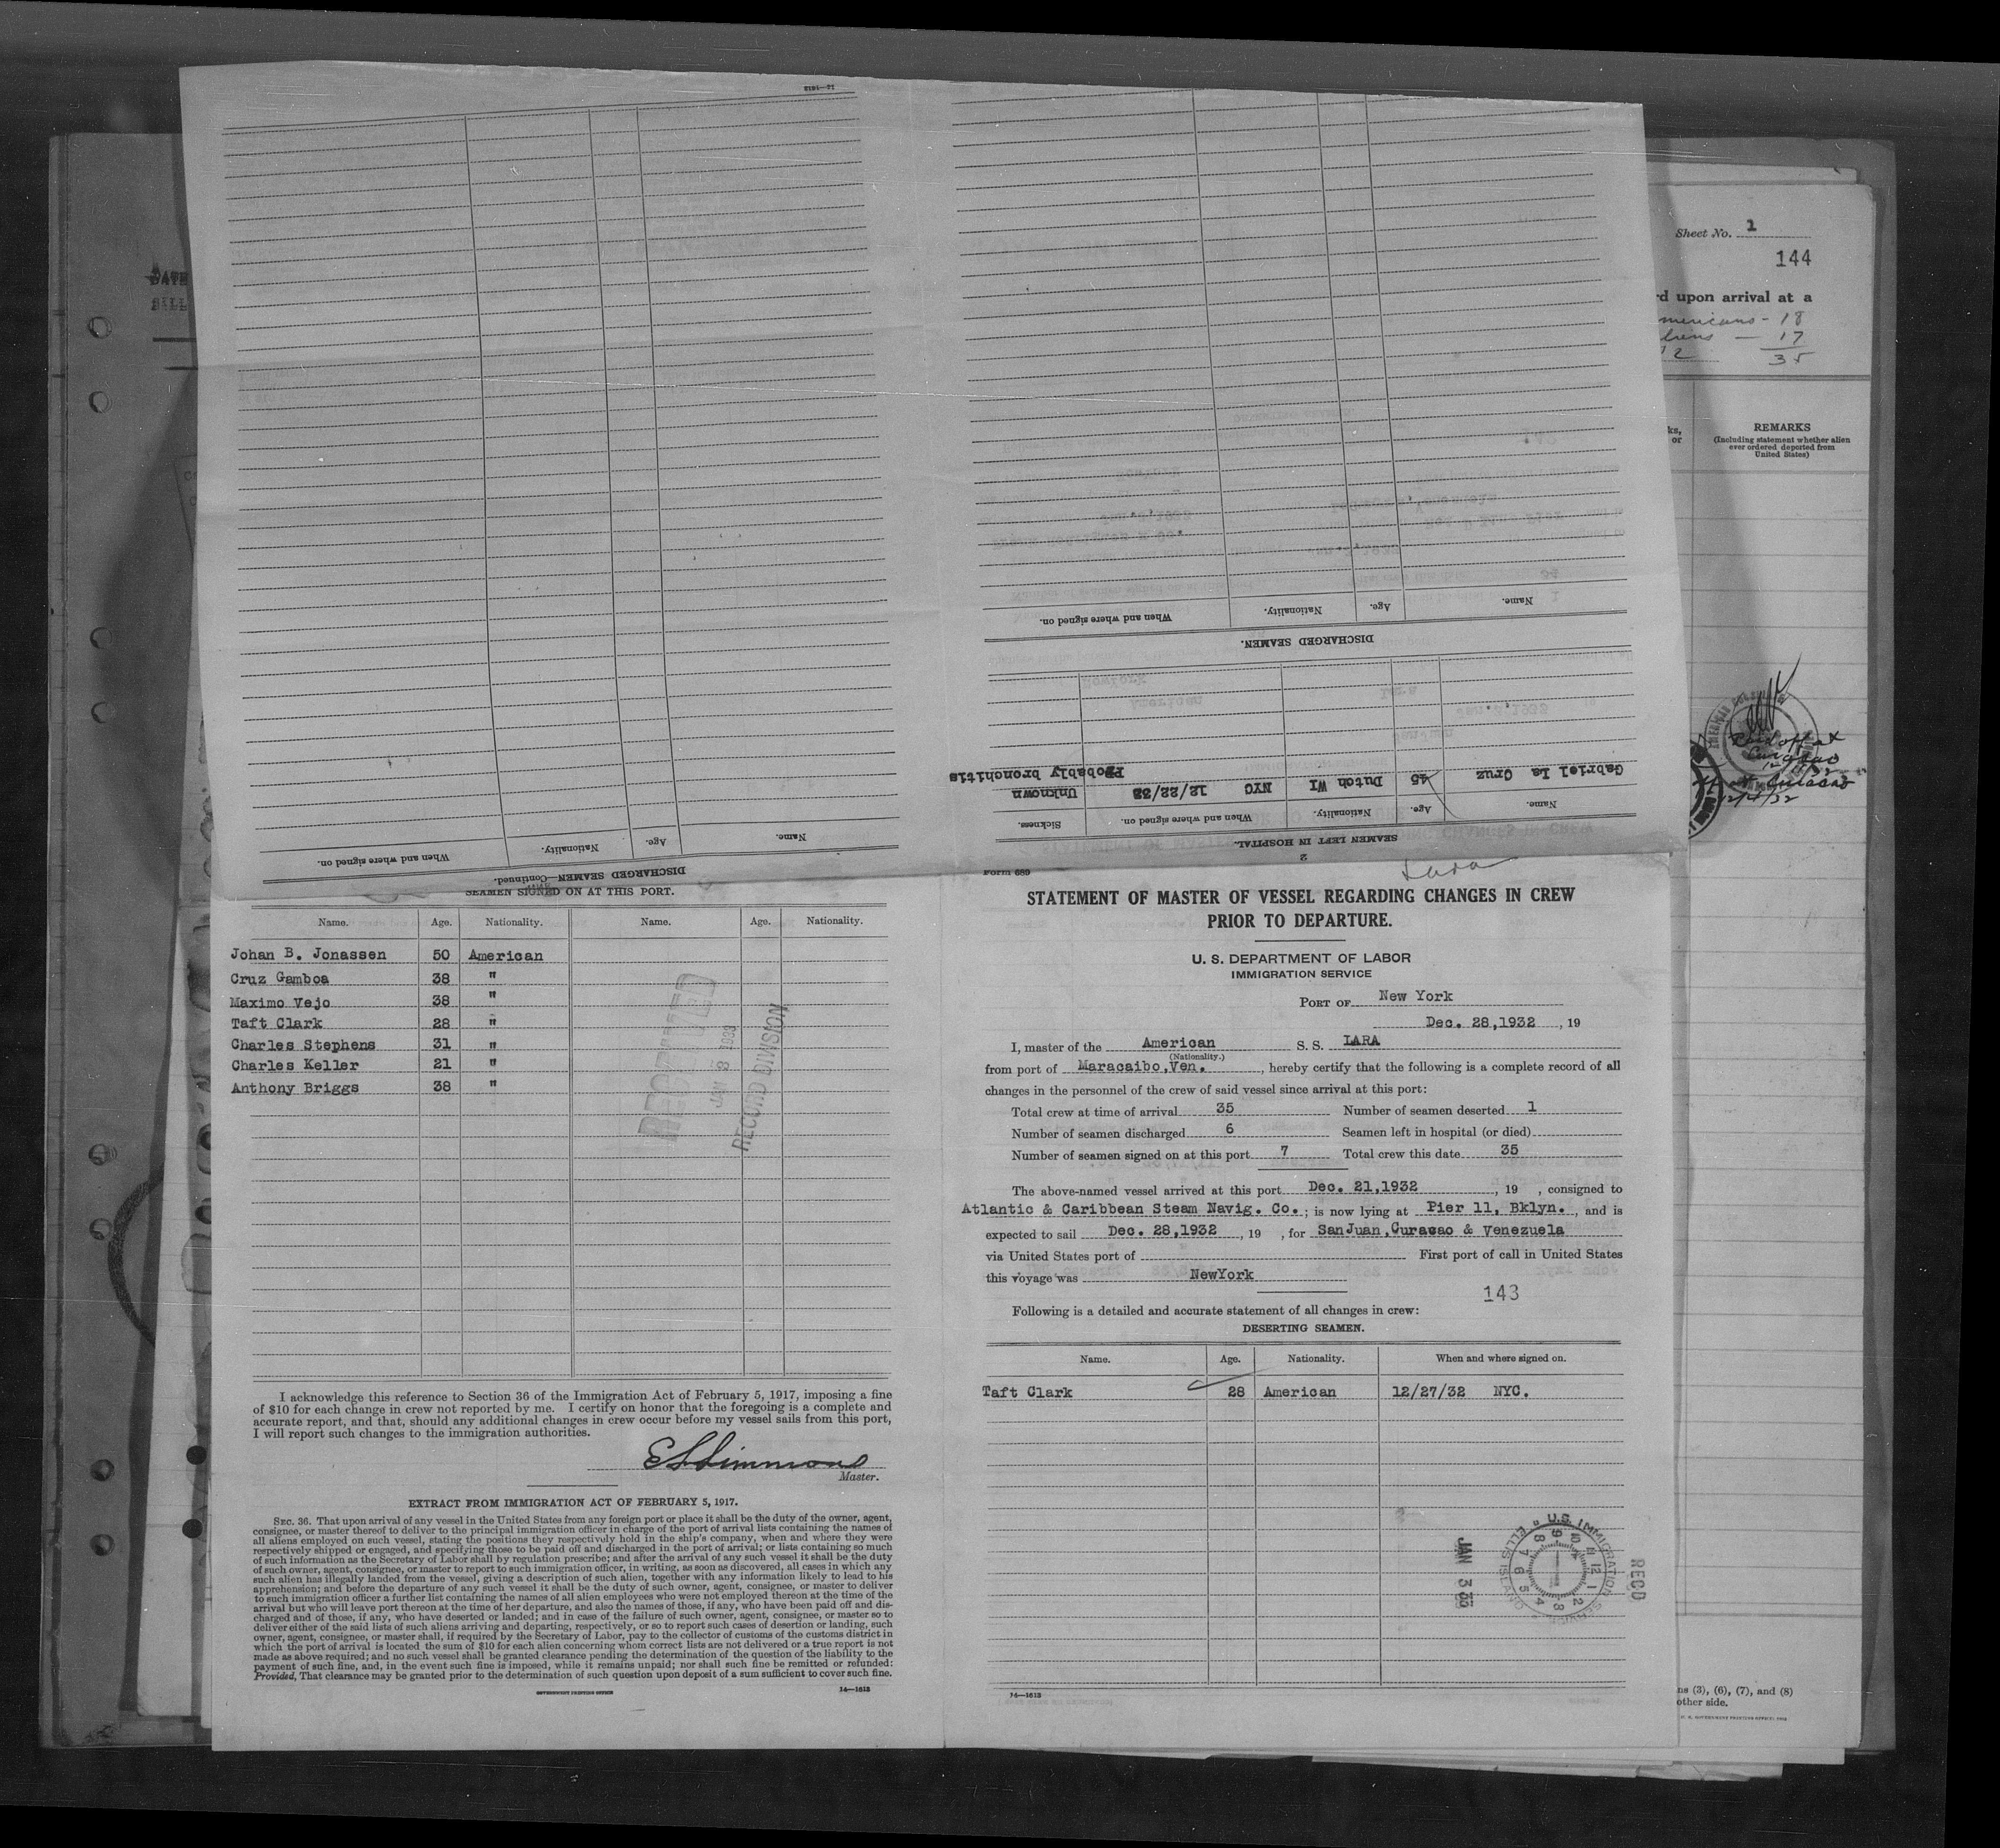 14—1613
Name. Age. Nationality. When and where signed on.
DISCHARGED SEAMEN—Continued.
Name. Age. Nationality. When and where signed on.
DISCHARGED SEAMEN.
Gabriel La Cruz 45 Dutch WI NYC 12/22/32 Unknown
Probably bronchitis
Name. Age. Nationality. When and where signed on. Sickness.
SEAMEN LEFT IN HOSPITAL.
2
Sheet No. 1
144
upon arrival at a
18
17
35
REMARKS
(Including statement whether alien
ever ordered deported from
United States)
Paid off at
Curacao
Curacao
SEAMEN SIGNED ON AT THIS PORT.
Name. Age. Nationality. Name. Age. Nationality.
Johan B. Jonassen 50 American
Cruz Gamboa 38 "
Maximo Vejo 38 "
Taft Clark 28 "
Charles Stephens 31 "
Charles Keller 21 "
Anthony Briggs 38 "
RECEIVED
JAN 3 1933
RECORD DIVISION
I acknowledge this reference to Section 36 of the Immigration Act of February 5, 1917, imposing a fine
of $10 for each change in crew not reported by me. I certify on honor that the foregoing is a complete and
accurate report, and that, should any additional changes in crew occur before my vessel sails from this port,
I will report such changes to the immigration authorities.
E S Simmons
Master.
EXTRACT FROM IMMIGRATION ACT OF FEBRUARY 5, 1917.
SEC. 36. That upon arrival of any vessel in the United States from any foreign port or place it shall be the duty of the owner, agent,
consignee, or master thereof to deliver to the principal immigration officer in charge of the port of arrival lists containing the names of
all aliens employed on such vessel, stating the positions they respectively hold in the ship's company, when and where they were
respectively shipped or engaged, and specifying those to be paid off and discharged in the port of arrival; or lists containing so much
of such information as the Secretary of Labor shall by regulation prescribe; and after the arrival of any such vessel it shall be the duty
of such owner, agent, consignee, or master to report to such immigration officer, in writing, as soon as discovered, all cases in which any
such alien has illegally landed from the vessel, giving a description of such alien, together with any information likely to lead to his
apprehension; and before the departure of any such vessel it shall be the duty of such owner, agent, consignee, or master to deliver
to such immigration officer a further list containing the names of all alien employees who were not employed thereon at the time of the
arrival but who will leave port thereon at the time of her departure, and also the names of those, if any, who have been paid off and dis-
charged and of those, if any, who have deserted or landed; and in case of the failure of such owner, agent, consignee, or master so to
deliver either of the said lists of such aliens arriving and departing, respectively, or so to report such cases of desertion or landing, such
owner, agent, consignee, or master shall, if required by the Secretary of Labor, pay to the collector of customs of the customs district in
which the port of arrival is located the sum of $10 for each alien concerning whom correct lists are not delivered or a true report is not
made as above required; and no such vessel shall be granted clearance pending the determination of the question of the liability to the
payment of such fine, and, in the event such fine is imposed, while it remains unpaid; nor shall such fine be remitted or refunded:
Provided, That clearance may be granted prior to the determination of such question upon deposit of a sum sufficient to cover such fine.
GOVERNMENT PRINTING OFFICE 14—1613
Lara
Form 689
STATEMENT OF MASTER OF VESSEL REGARDING CHANGES IN CREW
PRIOR TO DEPARTURE.
U. S. DEPARTMENT OF LABOR
IMMIGRATION SERVICE
PORT OF New York
Dec. 28,1932 , 19
I, master of the American S. S. LARA
(Nationality.)
from port of Maracaibo,Ven. , hereby certify that the following is a complete record of all
changes in the personnel of the crew of said vessel since arrival at this port:
Total crew at time of arrival 35 Number of seamen deserted 1
Number of seamen discharged 6 Seamen left in hospital (or died)
Number of seamen signed on at this port 7 Total crew this date 35
The above-named vessel arrived at this port Dec. 21,1932 , 19 , consigned to
Atlantic & Caribbean Steam Navig. Co. ; is now lying at Pier 11, Bklyn. , and is
expected to sail Dec. 28,1932 , 19 , for SanJuan,Curacao & Venezuela
via United States port of First port of call in United States
this voyage was NewYork
143
Following is a detailed and accurate statement of all changes in crew:
DESERTING SEAMEN.
Name. Age. Nationality. When and where signed on.
Taft Clark 28 American 12/27/32 NYC.
U.S. IMMIGRATION SERVICE
ELLIS ISLAND
REC'D
JAN 3
14—1613
(3), (6), (7), and (8)
other side.